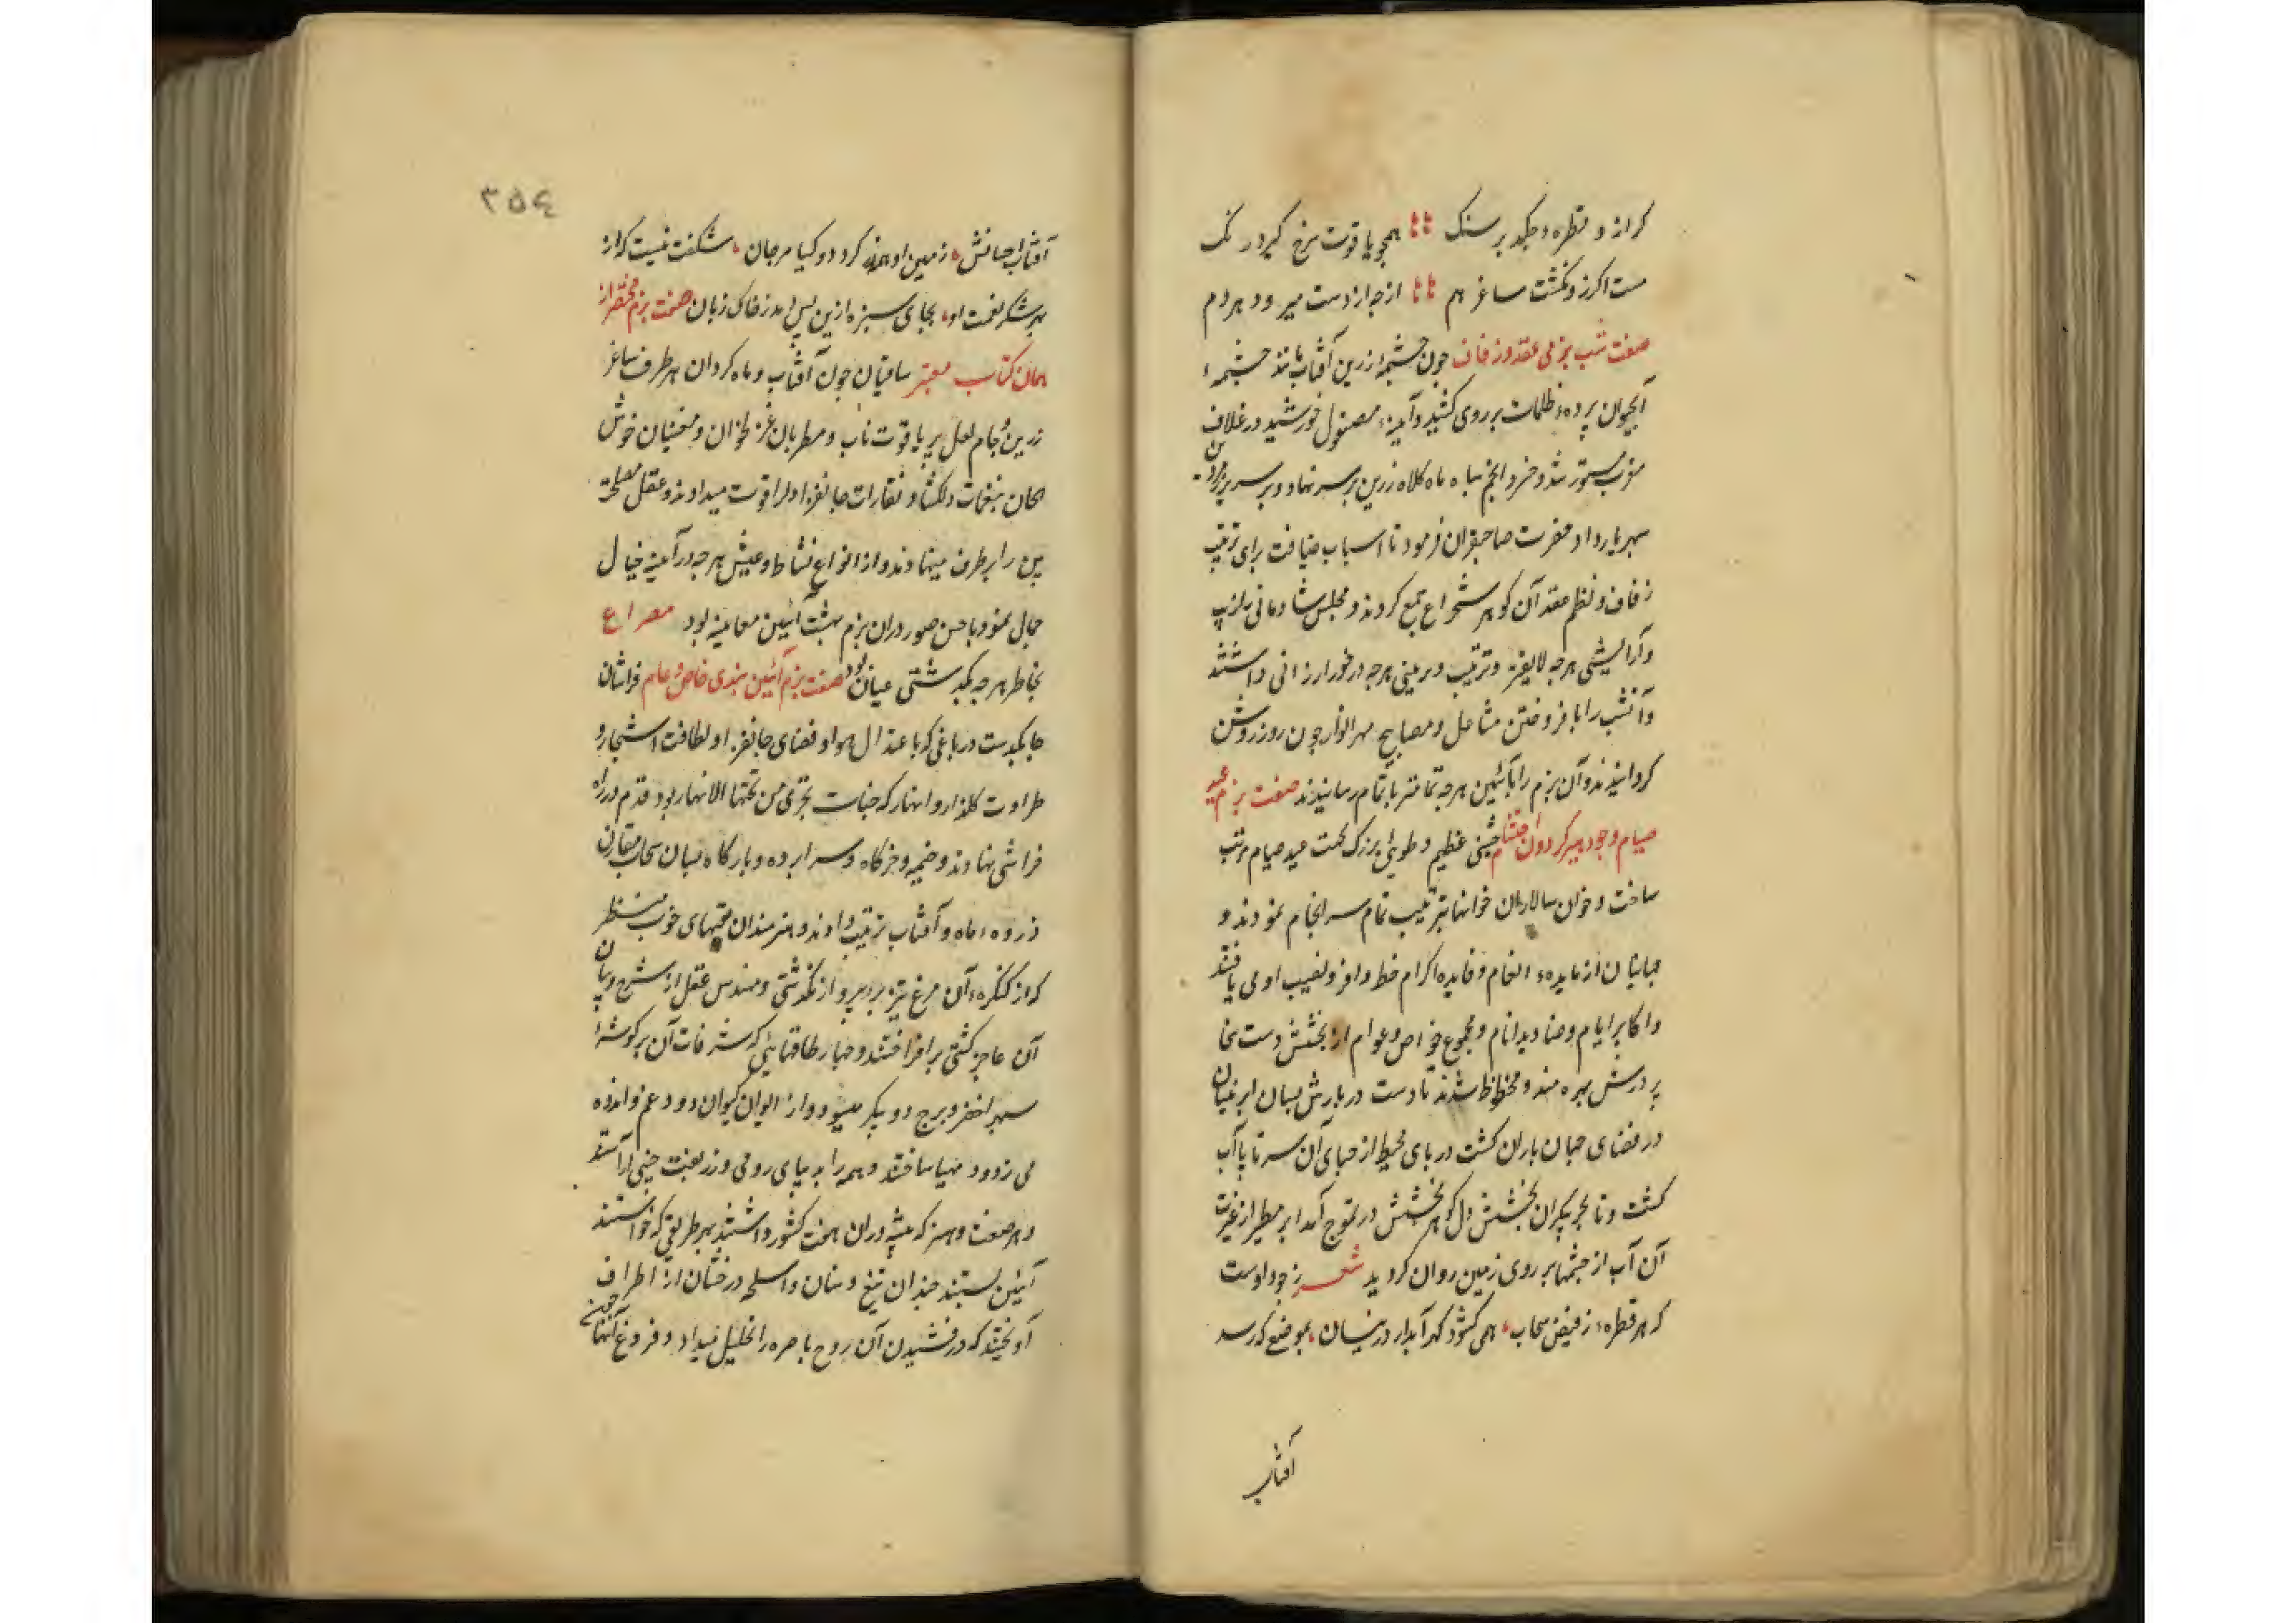 کر ازو قطرهٔ چکد بر سنک همچو یاقوت سرخ کیرد رنک
مست اکر زو نکشت ساغر هم از چه از دست میرود هر دم
صفت شب بزمی عقد و زفاف چون چشمهٔ زرین آفتاب مانند چشمهٔ
آبحیوان پردهٔ ظلمات بر روی کشید و آینهٔ مصقول خورشید در غلاف
مغرب مستور شد و خسرو انجم سپاه ماه کلاه زرین بر سر نهاد و بر سریر زرین
سپهر بار داد حضرت صاحبقران فرمود تا اسباب ضیافت برای ترتیب
زفاف و نظم عقد آن کوهر شجراع جمع کردند و مجلس شادمانی بزیب
و آرایشی هرچه لایقتر و ترتیب و تزیینی هرچه درخور ارزانی داشتند
و آنشب را بافروختن مشاعل و مصابیح مهر انوار چون روز روشن
کردانیدند و آن بزم را بآئین هرچه تمامتر باتمام رسانیدند صفت بزم عید
صیام وجود سپهر کردون احتشام جشنی عظیم و طوئی بزرک بجهت عید صیام مرتب
ساخت و خوان سالاران خوانها بترتیب تمام سرانجام نمودند و
جهانیان از مایدهٔ انعام و فایده اکرام حظ وافر و نصیب اوفی یافتند
و اکابر ایام و صنادید انام و مجموع خواص و عوام از بخشش دست سخا
پرورش بهره مند و محظوظ شدند تا دست دربارش بسان ابر نیسان
در فضای جهان باران کشت دریای محیط از حیای آن سر تا پا آب
کشت و تا بحر بیکران بخشش دل کوهر بخشش در تموج آمد ابر مطیر از غیرت
آن آب از چشمها بر روی زمین روان کردید شعر ز جود اوست
که هر قطرهٔ ز فیض سحاب همی شود کهر آبدار در نیسان بموضعی که رسد
آفتاب
٣٥٤
آفتاب احسانش زمین او همه زر کردد و کیا مرجان شکفت نیست که از
بهر شکر نعمت او بجای سبزه ازین پس دمد ز خاک زبان صفت بزم مختصر از
همان کتاب معتبر ساقیان چون آفتاب و ماه کردان بهر طرف ساغر
زرین و جام لعل پر یاقوت ناب و مطربان غزلخوان و مغنیان خوش
الحان بنغمات دلکشا و نقرات جانفزا دلرا قوت میدادند و عقل مصلحت
بین را برطرف مینهادند و از انواع نشاط و عیش هرچه در آینه خیال
جمال نمود باحسن صور در آن بزم بهشت آئین معاینه بود مصراع
بخاطر هرچه بکذشتی عیان بود صفت بزم آئین بندی خاص و عام فراشان
چابکدست در باغی که باعتدال هوا و فضای جانفزا و لطافت اشجار و
طراوت کلزار و انهار که جنات تجری من تحتها الانهار بود قدم در راه
فراشی نهادند و خیمه و خرکاه و سراپرده و بارکاه بسان سحاب مقارن
ذروهٔ ماه و آفتاب ترتیب دادند و هنرمندان قبهای خوب منظر
که از کنکرهٔ آن مرغ تیز پر بپرواز نکذشتی و مهندس عقل از شرح و بیان
آن عاجز کشتی برافراختند و چهار طاقهایی که شرفات آن بر کوشهٔ
سپهر اخضر و برج دو پیکر میسود و از ایوان کیوان دود غم و اندوه
می زدود مهیا ساختند و همه را بدیبای رومی و زربفت چینی آراستند
و هر صنعت و هنر که پیشه وران هفت کشور داشتند بهر طریقی که خواستند
آئین بستند چندان تیغ و سنان و اسلحه درخشان از اطراف
آویختند که درخشیدن آن روح باصره را تحلیل میداد و فروغ آنها چون